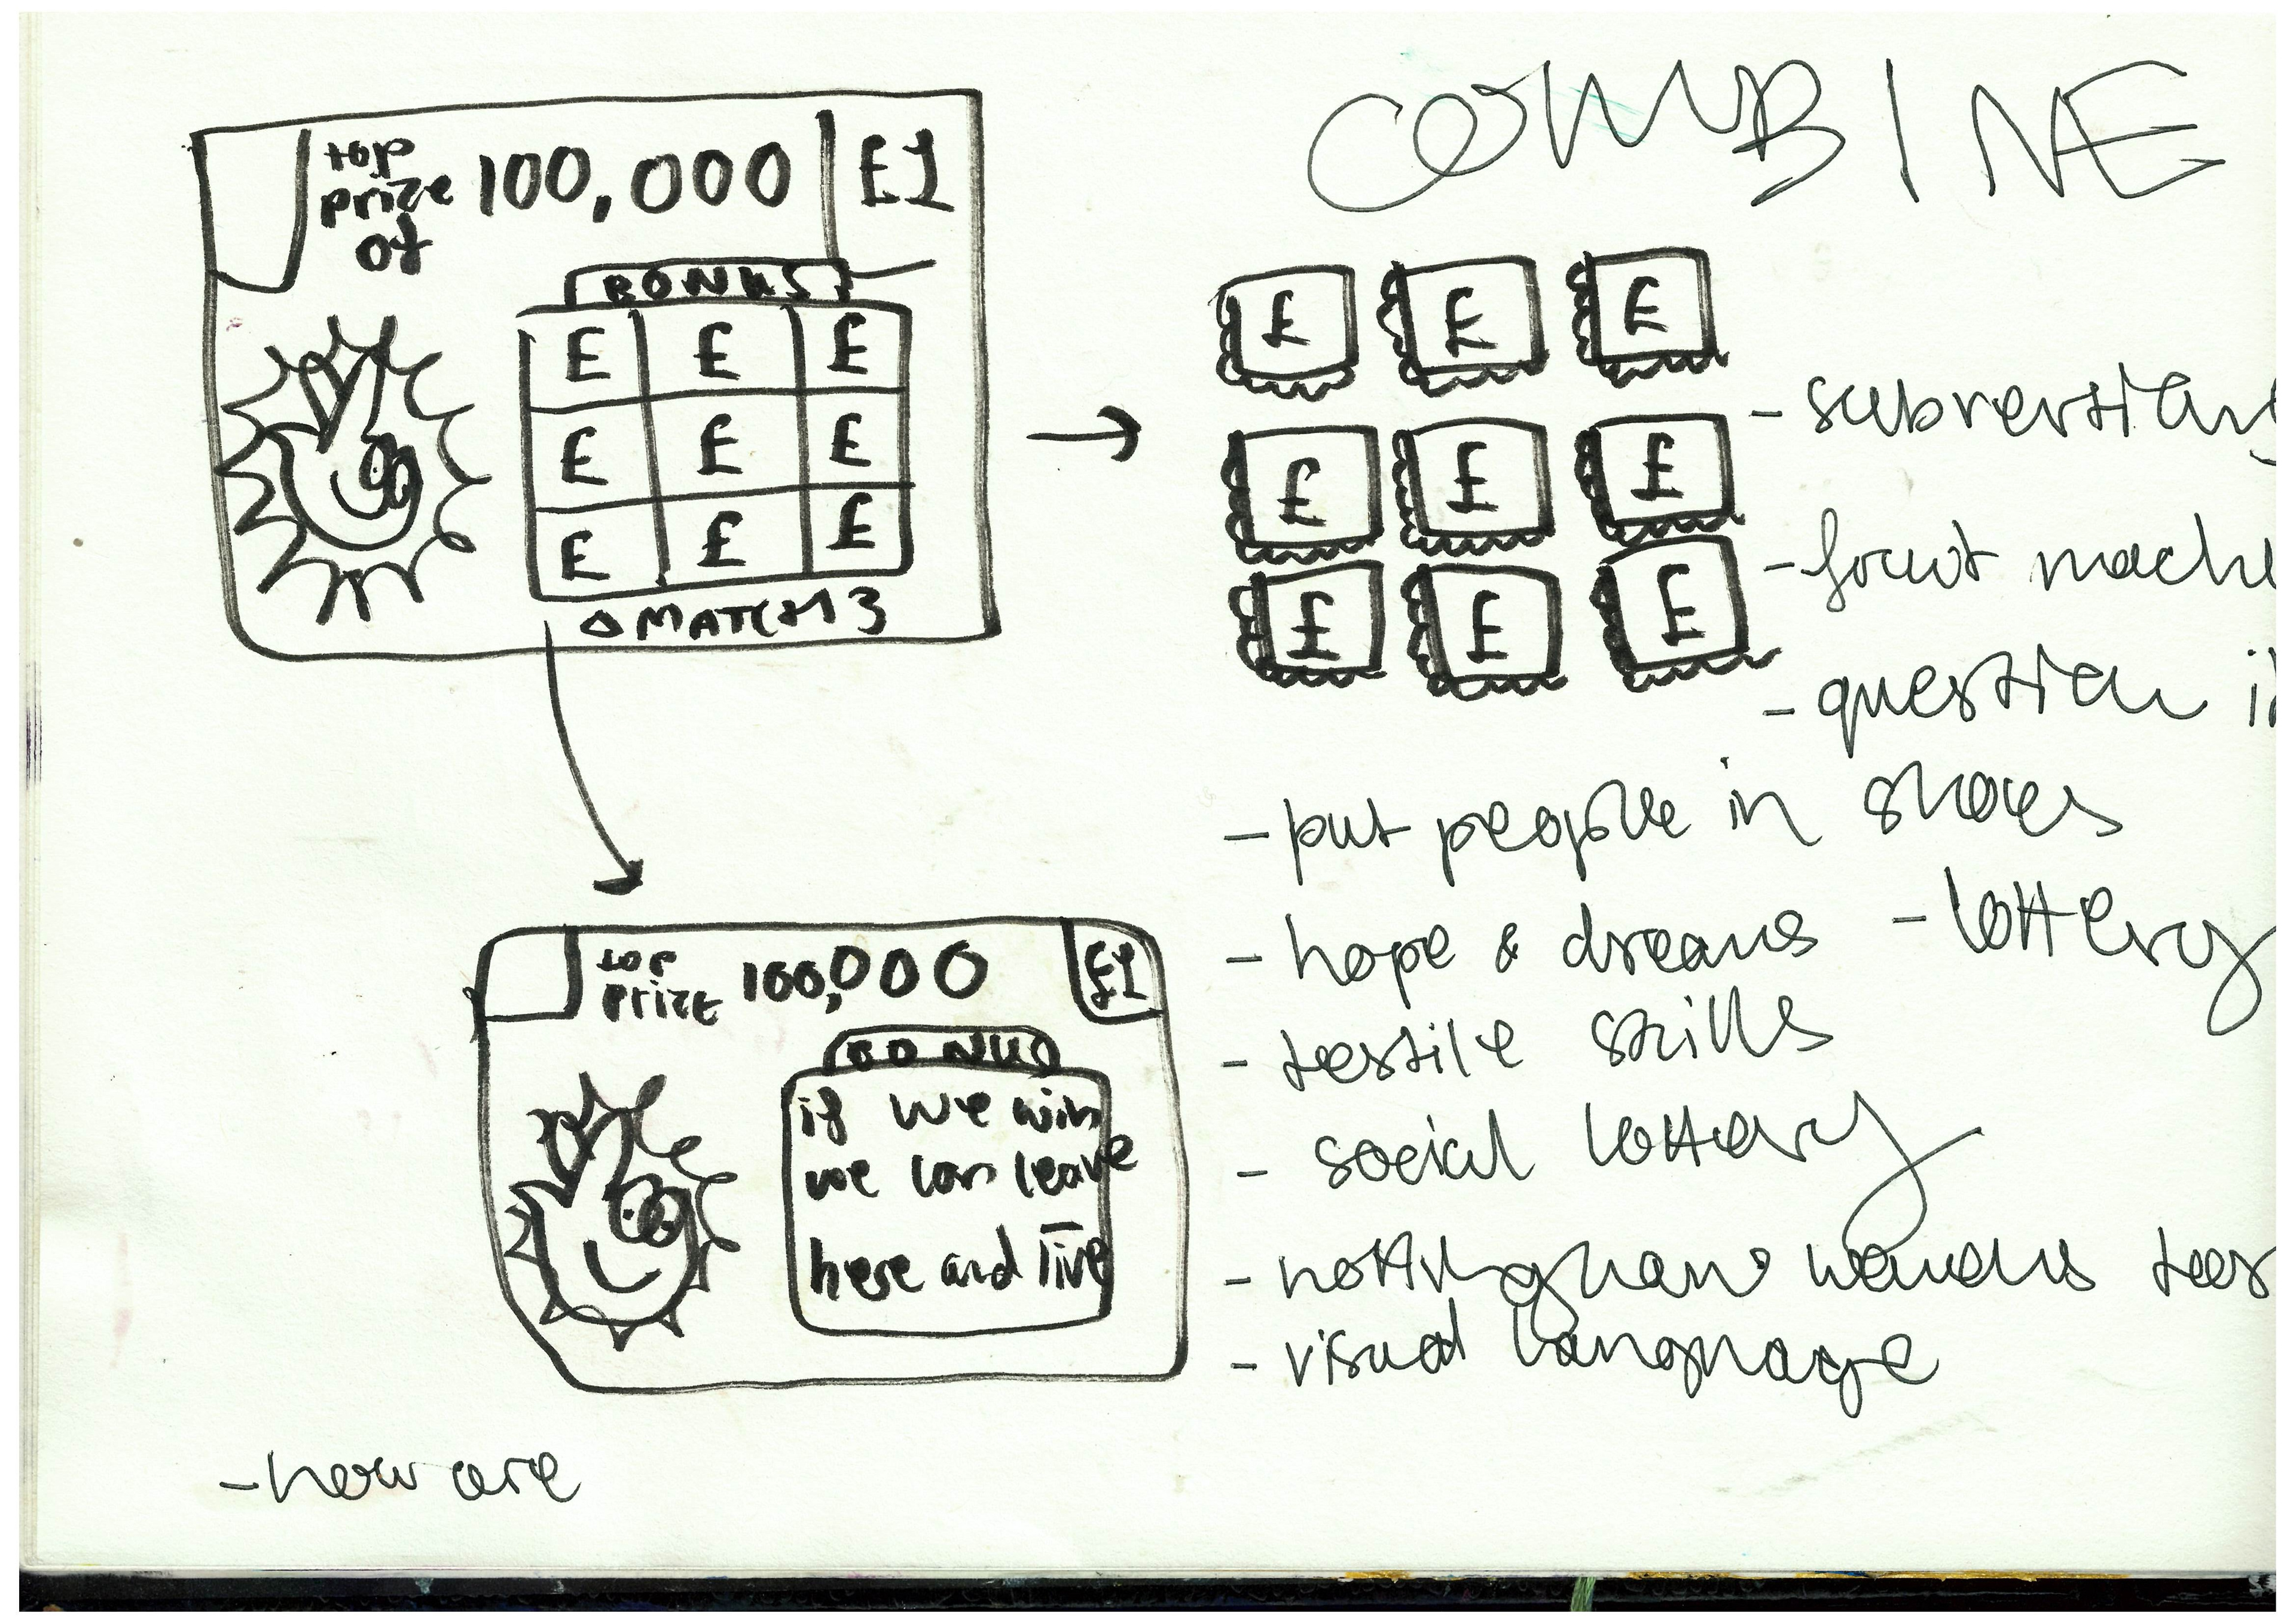 COMBINE
top prize of 100,000 £1
BONUS
£ £ £
£ £ £
£ £ £
MATCH 3
£ £ £
£ £ £
£ £ £
- fruit
- question
- put people in shoes
- hope & dreams - lottery
- textile skills
- social lottery
- nottingham
- visual language
top prize 100,000 £1
BONUS
if we win
we can leave
here and live
- how are